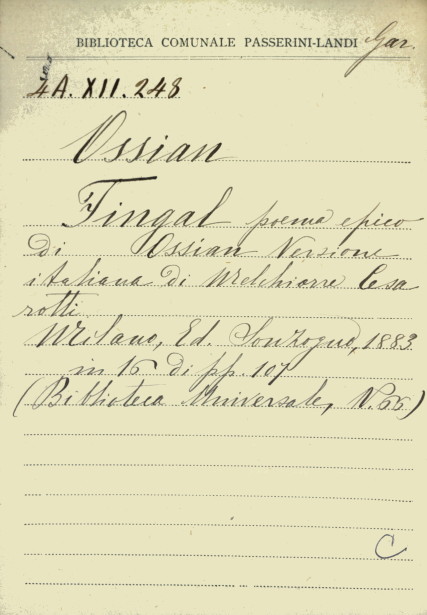 BIBLIOTECA COMUNALE PASSERINI-LANDI Gar.
4A. XII. 248
Ossian
Fingal poema epico
di Ossian Versione
italiana di Melchiorre Cesa
rotti
Milano, Ed. Sonzogno, 1883
in 16 di pp. 107
(Biblioteca Universale, N. 66)
C